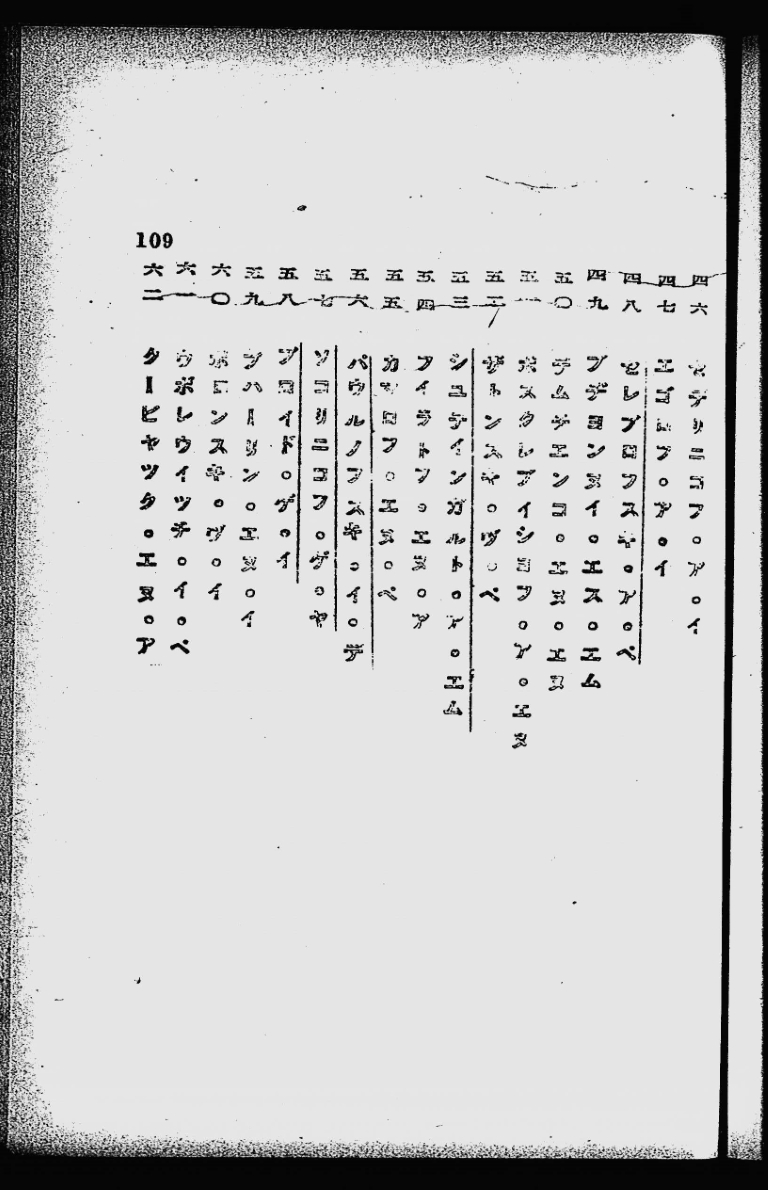 109
四六 セデリニコフ。ア。イ
四七 エゴロフ。ア。イ
四八 セレブロフスキ。ア。ペ
四九 ブデヨンヌイ。エス。エム
五〇 デムチエンコ。エヌ。エヌ
五一 ポスクレブイシヨフ。ア。エヌ
五二 ザトンスキ。ヴ。ペ
五三 シユテインガルト。ア。エム
五四 フイラトフ。エヌ。ア
五五 カマロフ。エヌ。ペ
五六 パウルノフスキ。イ。デ
五七 ソコリニコフ。ゲ。ヤ
五八 ブロイド。ゲ。イ
五九 ブハーリン。エヌ。イ
六〇 ポロンスキ。ヴ。イ
六一 ウボレウイツチ。イ。ペ
六二 タービヤツタ。エヌ。ア